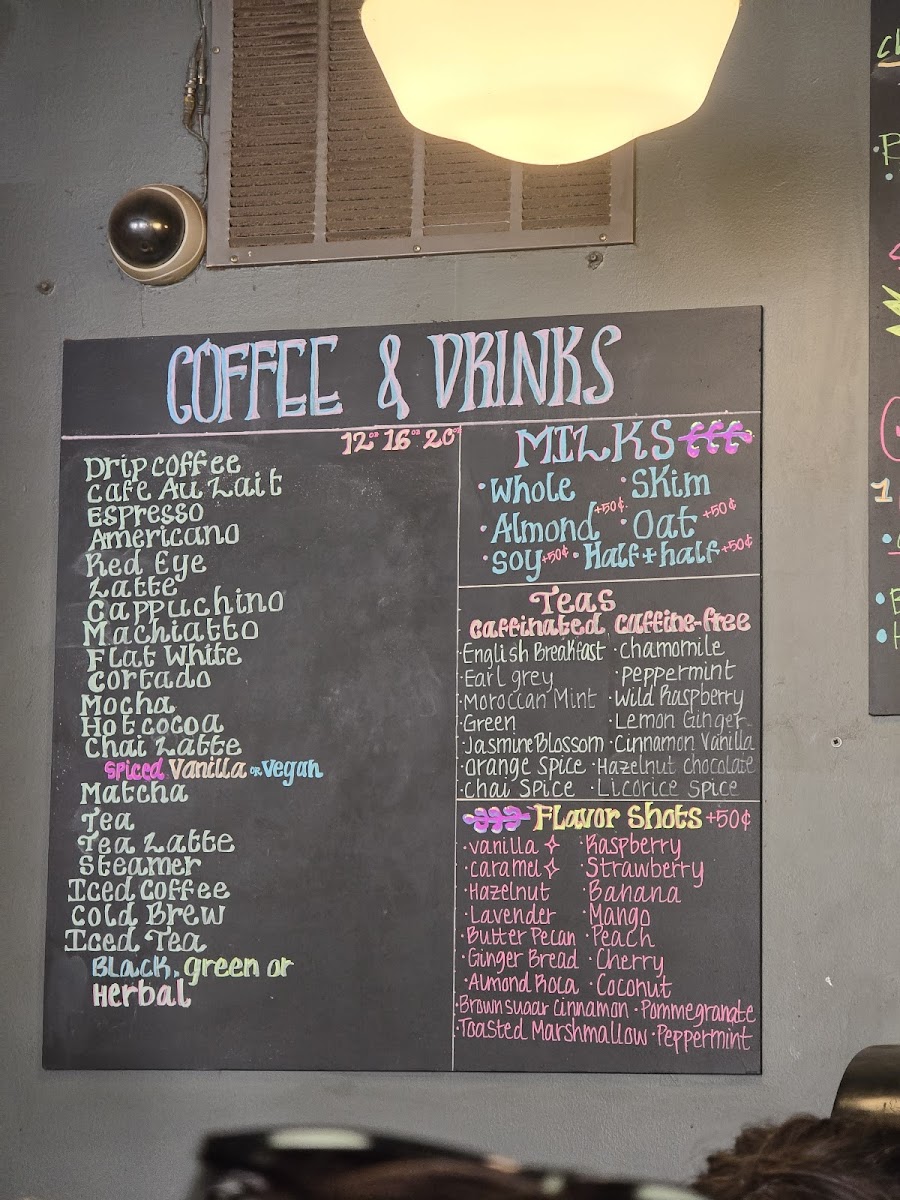 COFFEE & DRINKS
12oz 16oz 20oz
Drip coffee
Cafe Au Lait
Espresso
Americano
Red Eye
Latte
Cappuchino
Machiatto
Flat White
Cortado
Mocha
Hot cocoa
Chai Latte
Spiced Vanilla or Vegan
Matcha
Tea
Tea Latte
Steamer
Iced Coffee
Cold Brew
Iced Tea
Black, green or
Herbal
MILKS
·Whole ·Skim
·Almond +50¢ ·Oat +50¢
·Soy +50¢ ·Half+half +50¢
Teas
caffinated caffine-free
·English Breakfast ·chamomile
·Earl grey ·peppermint
·Moroccan Mint ·Wild Raspberry
·Green ·Lemon Ginger
·Jasmine Blossom ·Cinnamon Vanilla
·Orange Spice ·Hazelnut chocolate
·Chai Spice ·Licorice Spice
Flavor Shots +50¢
·vanilla ·Raspberry
·caramel ·Strawberry
·Hazelnut ·Banana
·Lavender ·Mango
·Butter Pecan ·Peach
·Ginger Bread ·Cherry
·Almond Roca ·Coconut
·Brown sugar cinnamon ·Pommegranate
·Toasted Marshmallow ·Peppermint